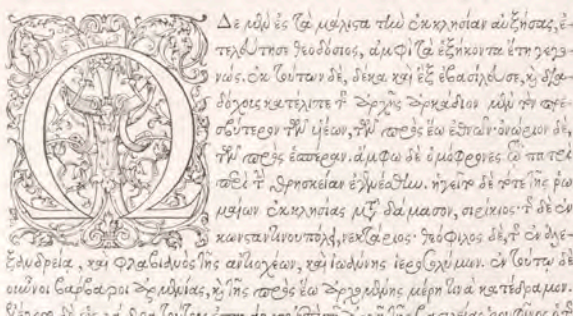 ΩΔε μὲν ἐς τὰ μάλιστα τὴν ἐκκλησίαν αὐξήσας, ἐ-
τελεύτησε θεοδόσιος, ἀμφὶ τὰ ἑξήκοντα ἔτη γεγο-
νώς. ἐκ τούτων δὲ, δέκα καὶ ἓξ ἐβασίλευσε, καὶ δια-
δόχους κατέλιπε τῆς ἀρχῆς ἀρκάδιον μὲν τὸν πρε-
σβύτερον τῶν υἱέων, τῶν πρὸς ἕω ἐθνῶν· ὀνώριον δὲ,
τῶν πρὸς ἑσπέραν. ἄμφω δὲ ὁμόφρονες τῷ πατρὶ
περὶ τ θρησκείαν ἐγενέσθην. ἡγεῖτο δὲ τότε τῆς ῥω
μαίων ἐκκλησίας μετὰ δάμασον, σιρίκιος· τ δὲ ἐν
κωνσταντίνουπολει, νεκτάριος· θεόφιλος δὲ, τ ἐν ἀλε-
ξανδρεία, καὶ φλαβιανὸς τῆς ἀντιοχέων, καὶ ἰωάννης ἱεροσολύμων. ἐν τούτῳ δὲ
οὖννοι βάρβαροι ἀρμενίας, καὶ τῆς πρὸς ἕω ἀρχομένης μέρη τινὰ κατέδραμον.